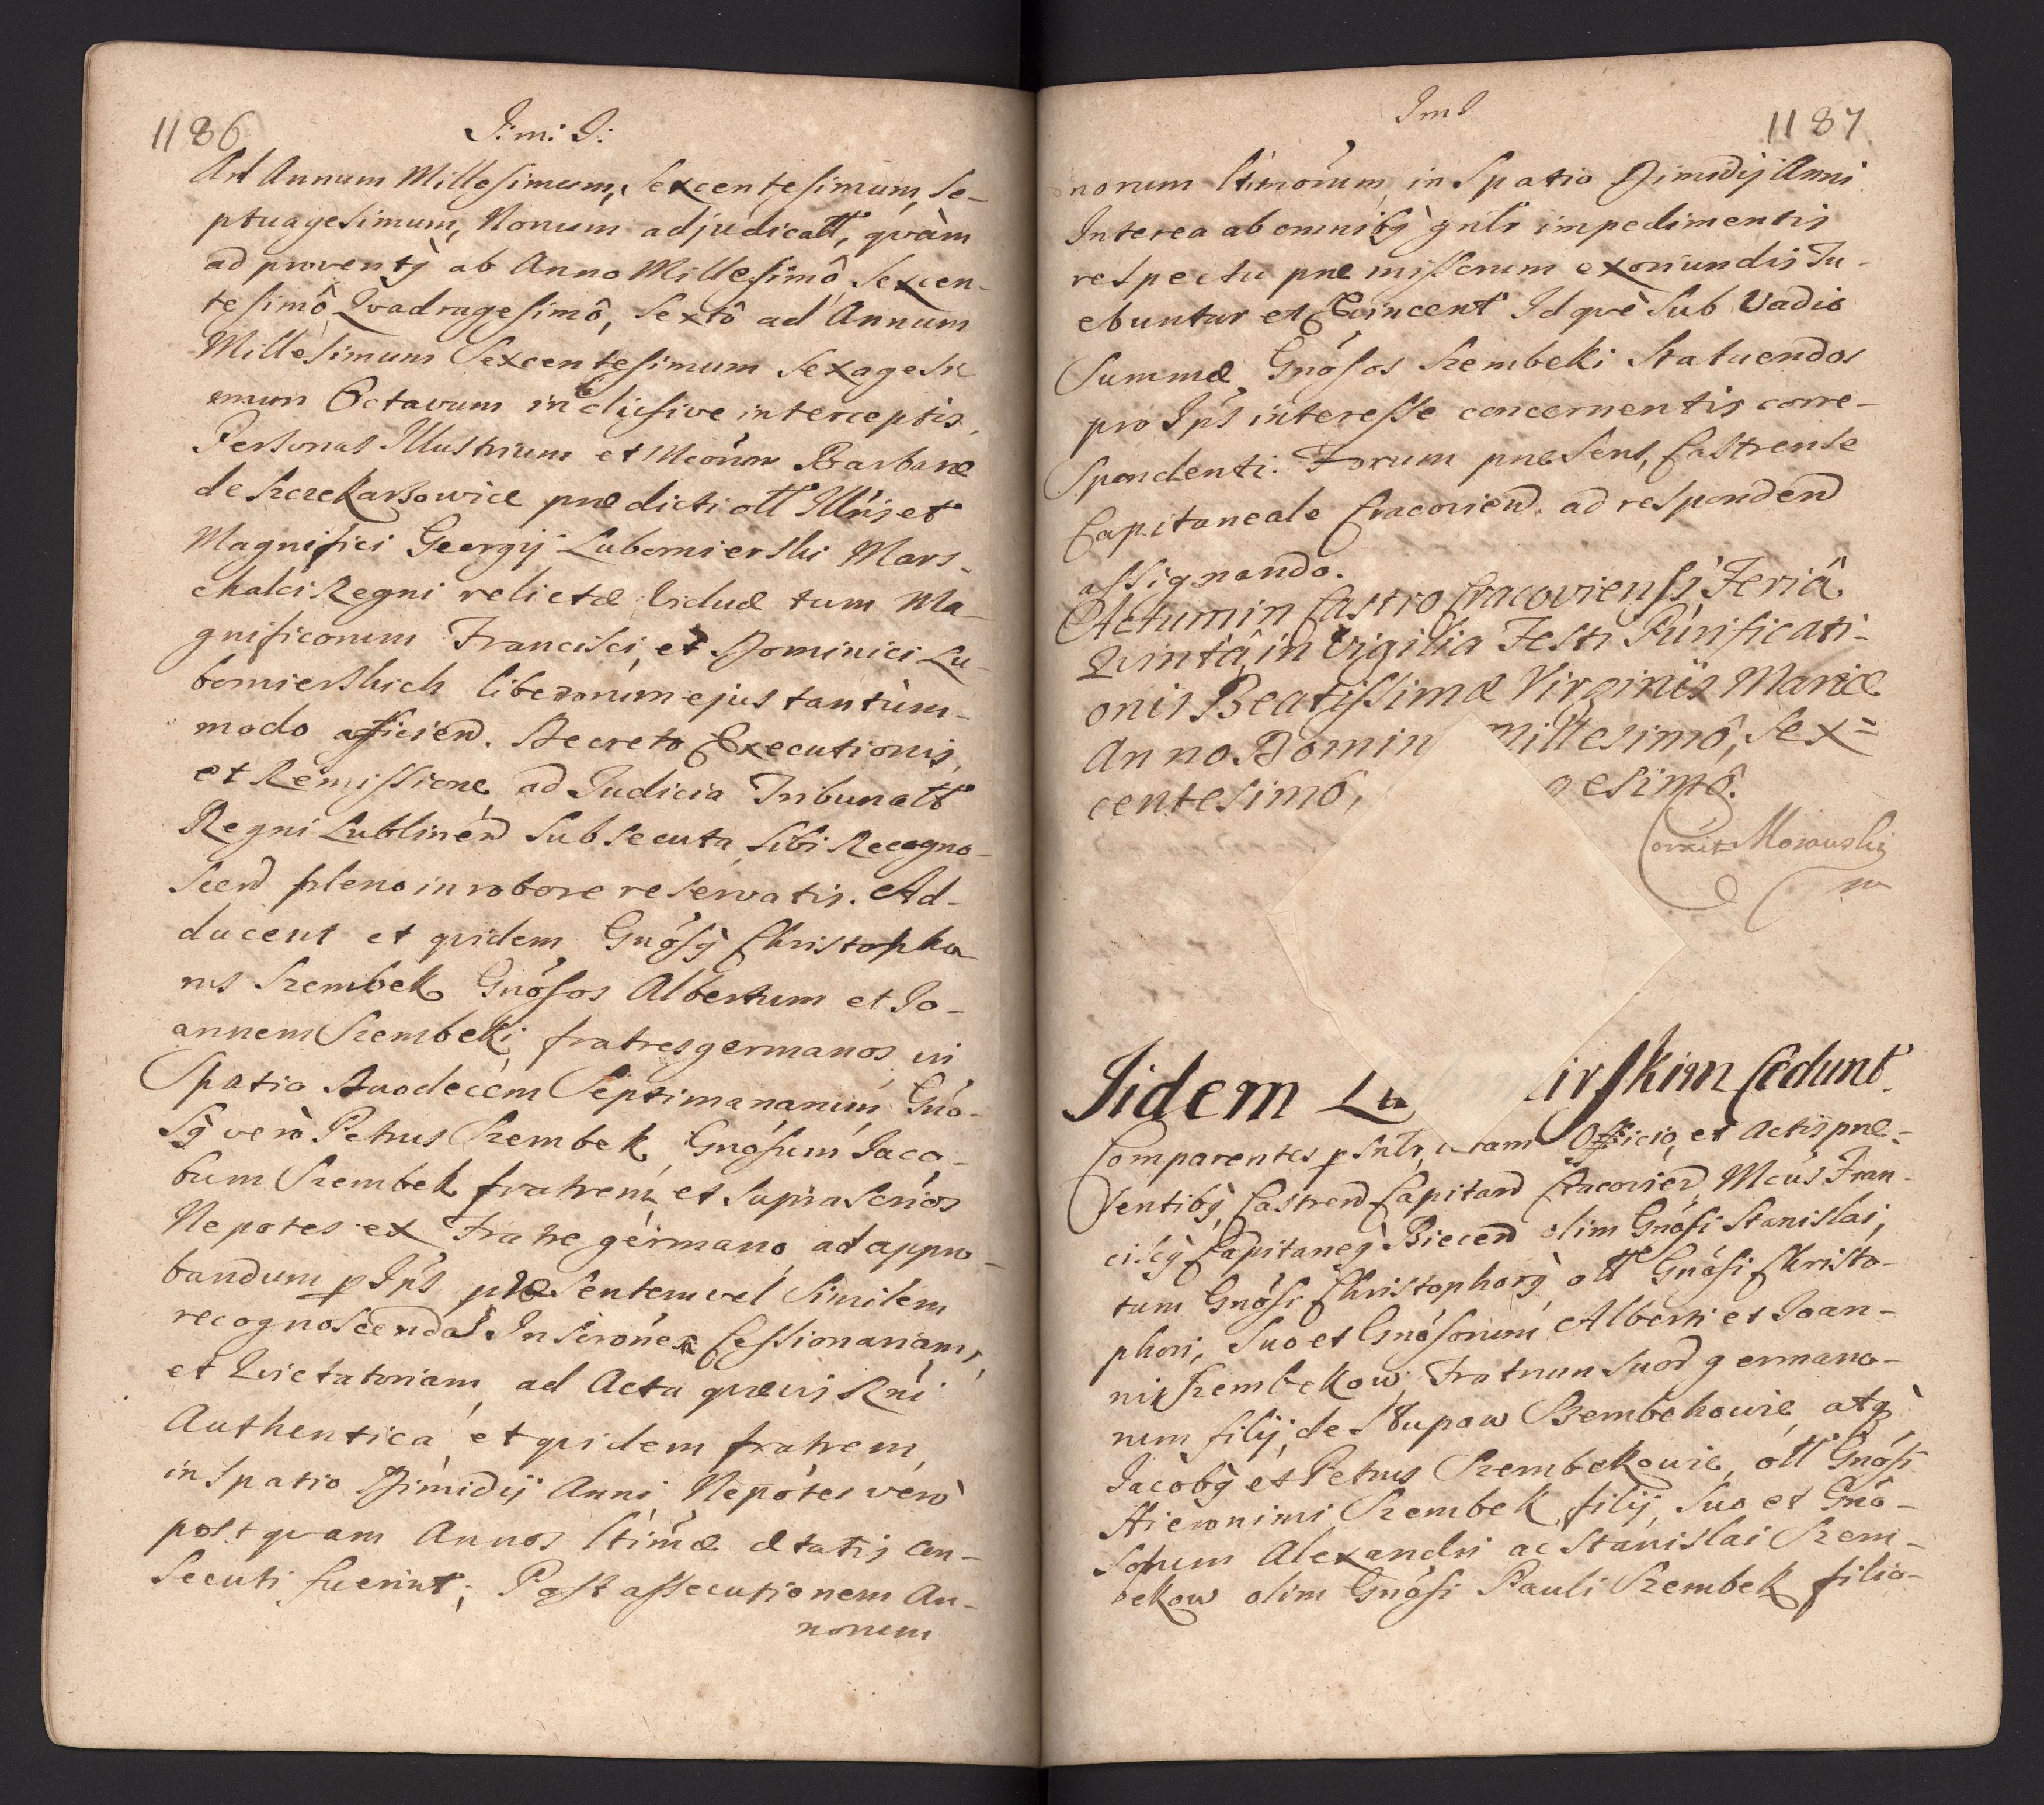 1186
J: m: J:
Ad Annum Millesimum, Sexcentesimum, Se-
ptuagesimum, Nonum adjudicatt, qvàm
ad proventq ab Anno Millesimô Sexcen-
tesimô Qvadragesimô, Sextô ad Annum
Millesimum Sexcentesimum Sexagesi
mum Octavum inclusive interceptis,
Personas Illustrium et Mcorum Barbaræ
de Szczekarzowice prædicti ott Illris et
Magnifici Georgij Lubomierski Mars-
chalci Regni relictæ Viduæ tum Ma-
gnificorum Francisci, et Dominici Lu-
bomierskich liberorum ejus tantùm-
modo afficien. Decreto Executionis,
et Remissione ad Judicia Tribunatt
Regni Lublinen subsecuta, sibi Recogno-
scen pleno in robore reservatis. Ad-
ducent et qvidem Gnosq Christopho
rus Szembek Gnosos Albertum et Jo-
annem Szembeki fratres germanos in
Spatio Duodecem Septimanarum, Gno-
sq verò Petrus Szembek, Gnosum Jaco-
bum Szembek fratrem, et suprascrios
Nepotes ex Fratre germano, ad appro-
bandum p Ips præsentem vel similem
recognoscenda Inscrõnem Cessionariam,
et Qvietatoriam, ad Acta qvævis Rni
Authentica, et qvidem fratrem,
in spatio Dimidij Anni, Nepotes verò
postqvam Annos ltimæ ætatis con-
secuti fuerint; Post assecutionem An-
norum
Jm J
1187
norum ltimorum, in Spatio Dimidij Anni
Interea ab omnibq gnlr impedimentis
respectu præmissorum exoriundis Tu-
ebuntur et Evincent Idqvè sub Vadio
Summæ Gnosos Szembeki statuendos
pro Ips interesse concernentis corre-
spondenti. Forum præsens, Castrense
Capitaneale Cracovien. ad responden
assignando.
Actum in Castro Cracoviensi Feriâ
Qvintâ, in Vigilia Festi Purificati-
onis Beatissimæ Virginis Mariæ
Anno Domin Millesimô, Sex=
centesimô, gesimô.
Correxit Morawski
Iidem Lu irskim Cedunt.
Comparentes p snlr, coram Officio, et Actis præ-
sentibq, Castren Capitan Cracovien, Mcus Fran-
ciscq Capitaneq Biecen olim Gnosi Stanislai,
tum Gnosi Christophorq ott Gnosi Christo-
phori, suo et Gnosorum Alberti et Joan-
nis Szembekow Fratrum suor germano-
rum filij, de Słupow Szembekowie, atq
Jacobq et Petrus Szembekowie, ott Gnosi
Hieronimi Szembek filij, suo et Gno-
sorum Alexandri ac Stanislai Szem-
bekow olim Gnosi Pauli Szembek filio-